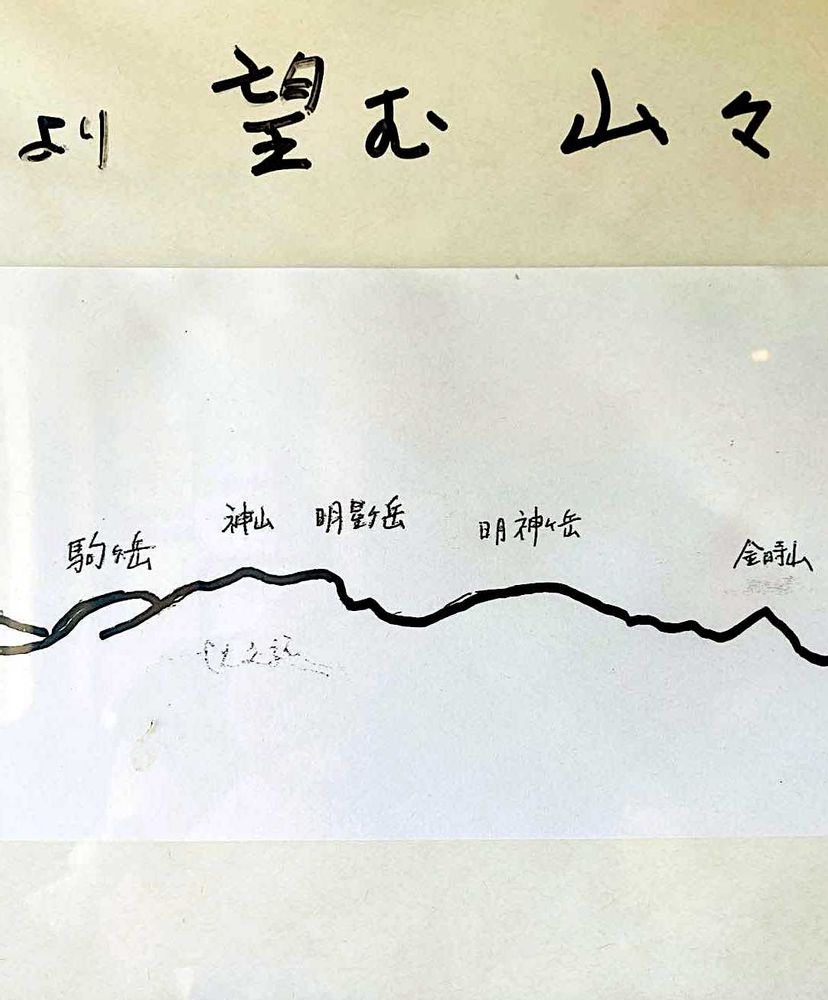 より 望む 山々
駒ヶ岳 神山 明星ヶ岳 明神ヶ岳 金時山